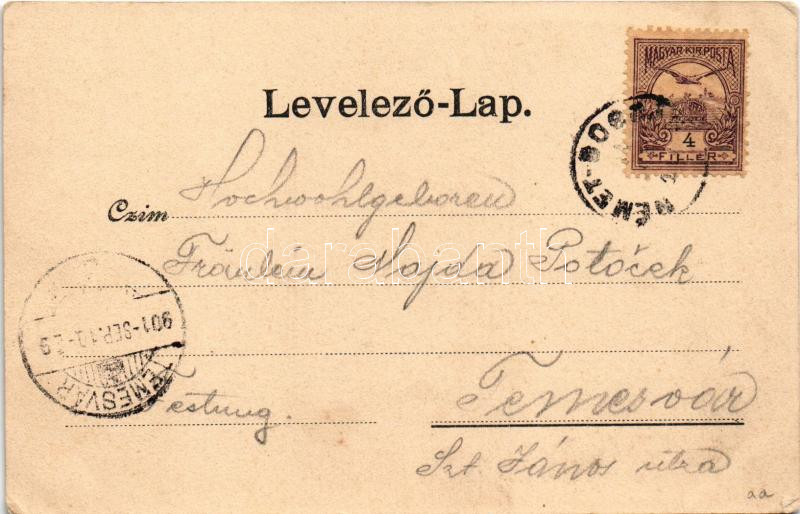 MAGYAR KIR. POSTA
4
FILLÉR
NÉMET-BOG
Levelező-Lap.
Czim Hochwohlgeboren
Fräulein Majda Potoček
darabanth
901-SEP.10
TEMESVÁR
Festung.
Temesvár
Szt. János utza
aa